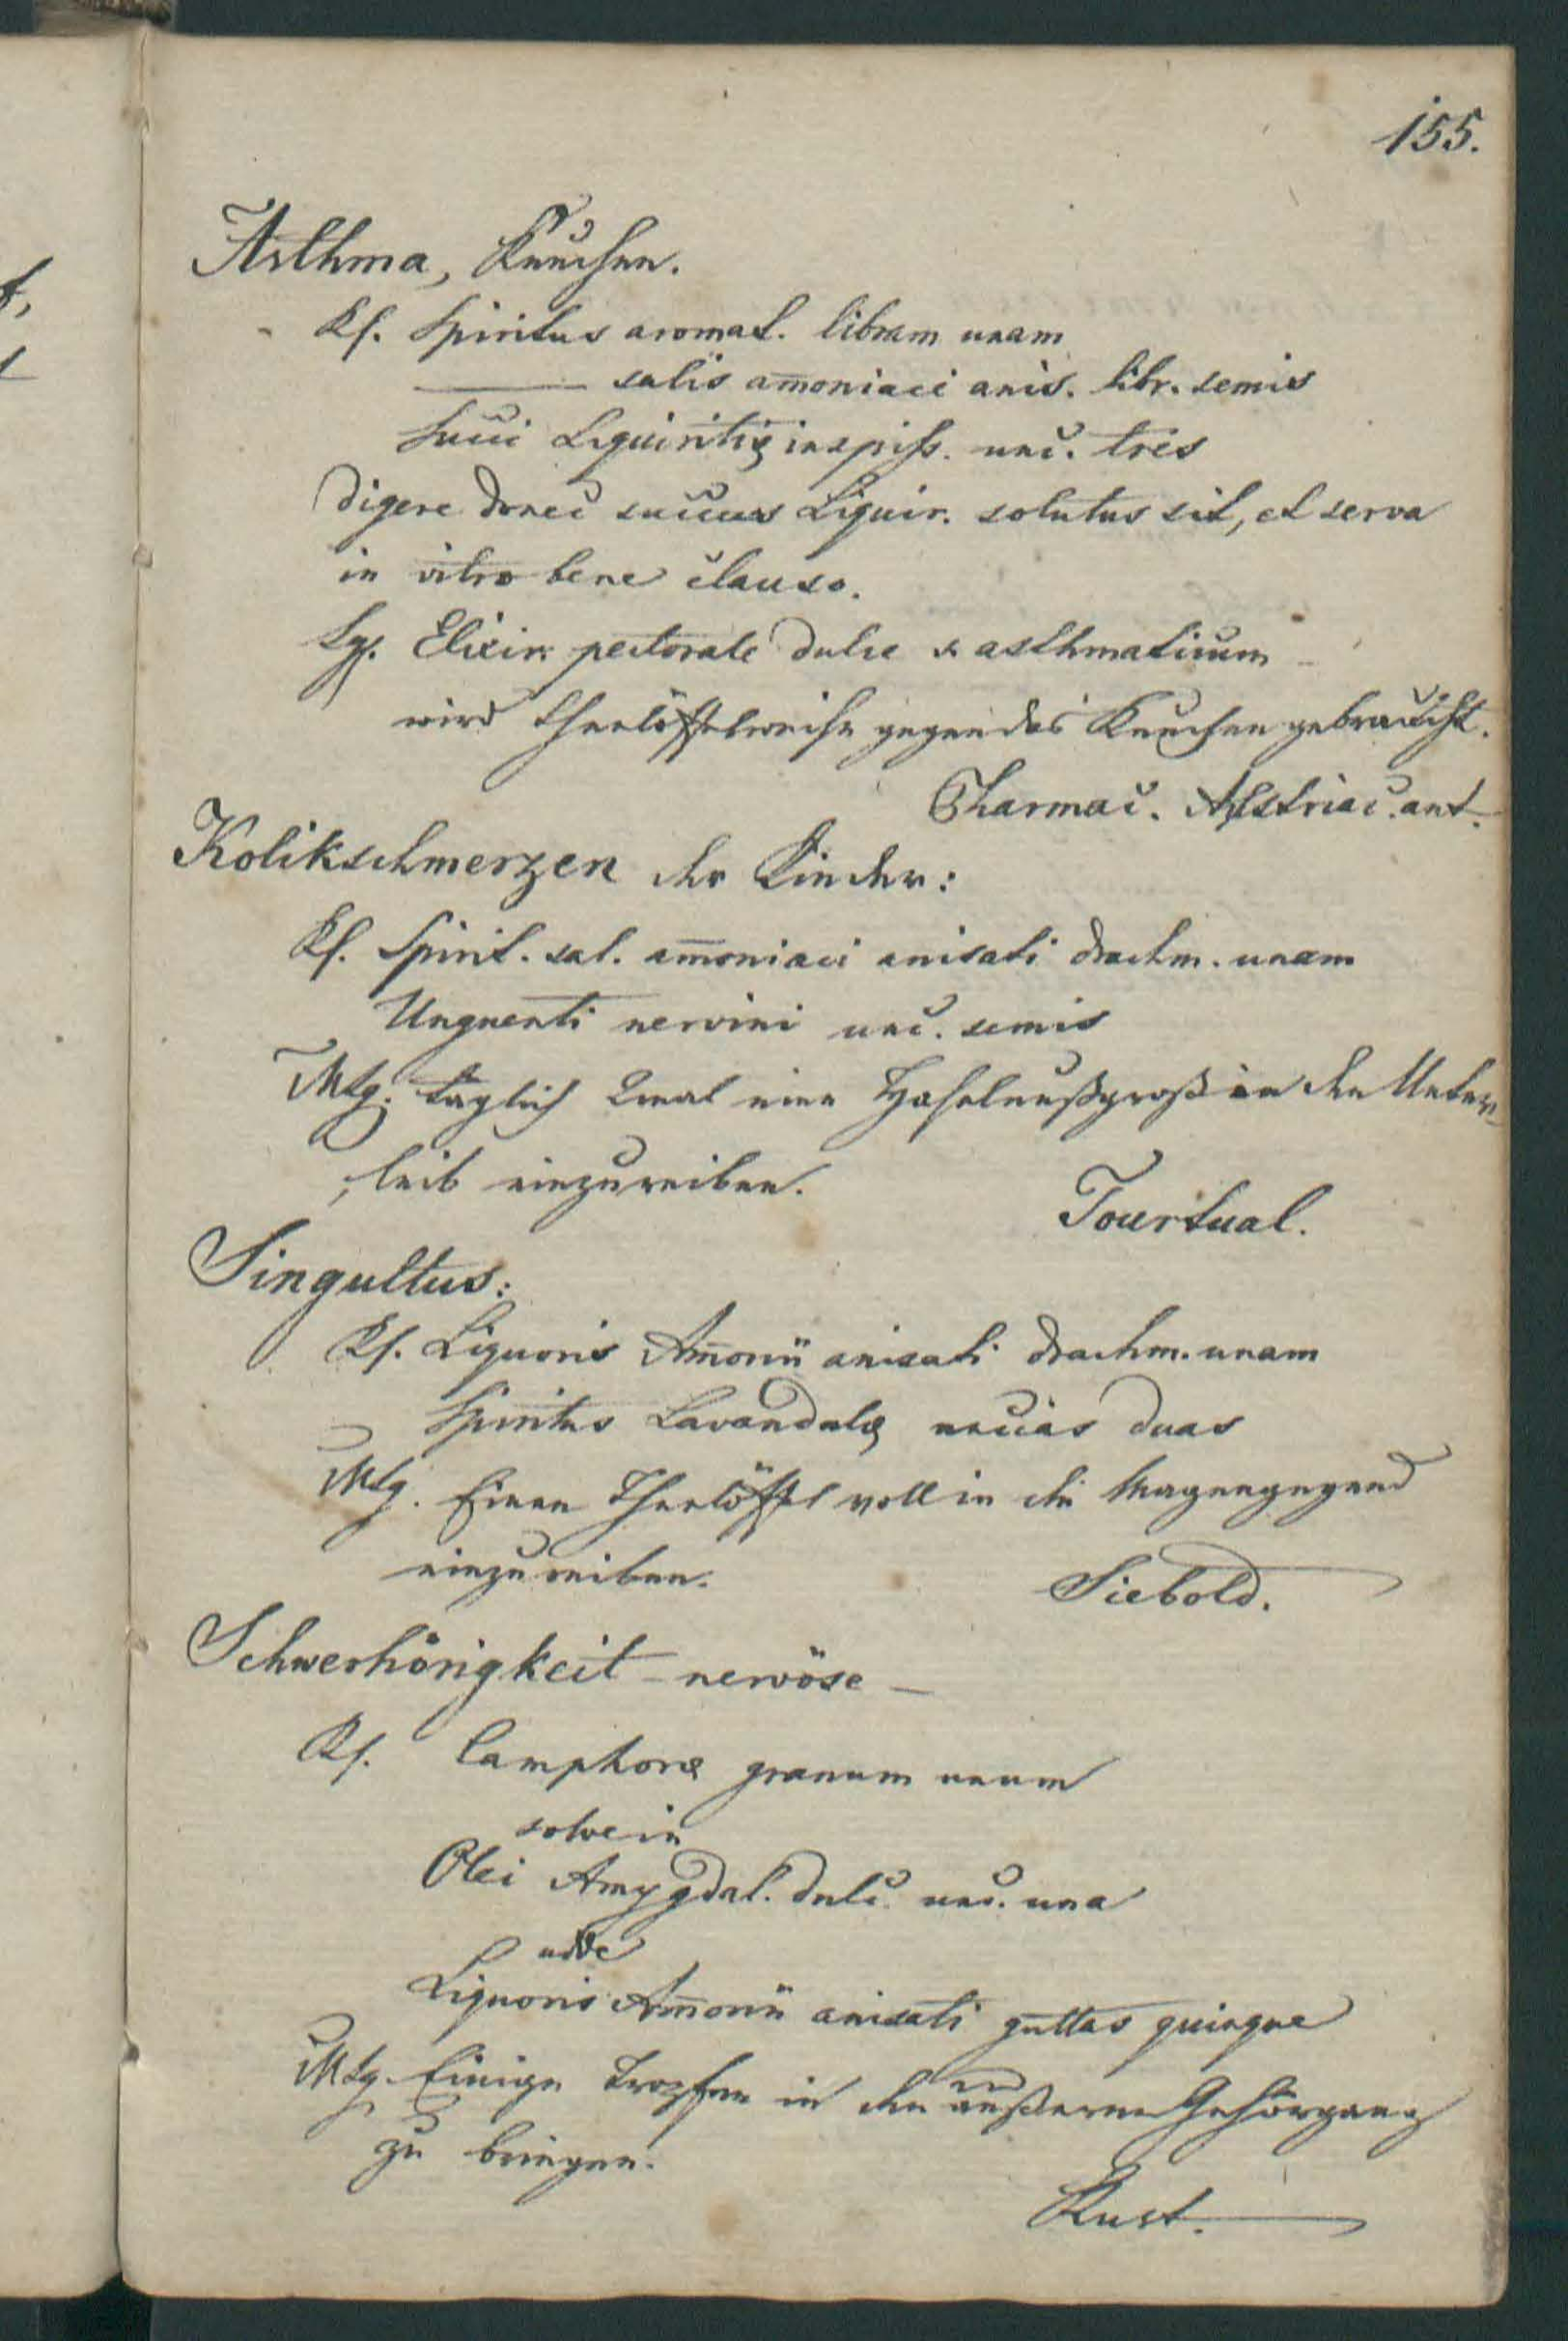 155.
Asthma, Keuchen.
Rf. Spiritus aromat. libram unam
——— salis amoniaci anis. libr. semis
Succi Liquiritiæ inspiss. unc. tres
Digere donec succus Liquir. solutus sit, et serva
in vitro bene clauso.
Sg. Elixir pectorale dulce s. asthmaticum –
wird theelöffelweise gegen das Keuchen gebraucht.
Pharmac. Austriac. ant.
Kolikschmerzen der Kinder:
Rf. Spirit. sal. amoniaci anisati drachm. unam
Unguenti nervini unc. semis
MSg. täglich 2mal eine Haselnußgroß in den Unter-
leib einzureiben.
Tourtual.
Singultus:
Rf. Liquoris Amonii anisati drachm. unam
Spiritus Lavandulæ uncias duas
MSg. Einen Theelöffel voll in die Magengegend
einzureiben.
Siebold.
Schwerhörigkeit – nervöse –
Rf. Camphoræ granum unum
solve in
Olei Amygdal. dulc. unc. una
adde
Liquoris Amonii anisati guttas quinque
MSg. Einige Tropfen in den äußeren Gehörgang
zu bringen.
Rust.